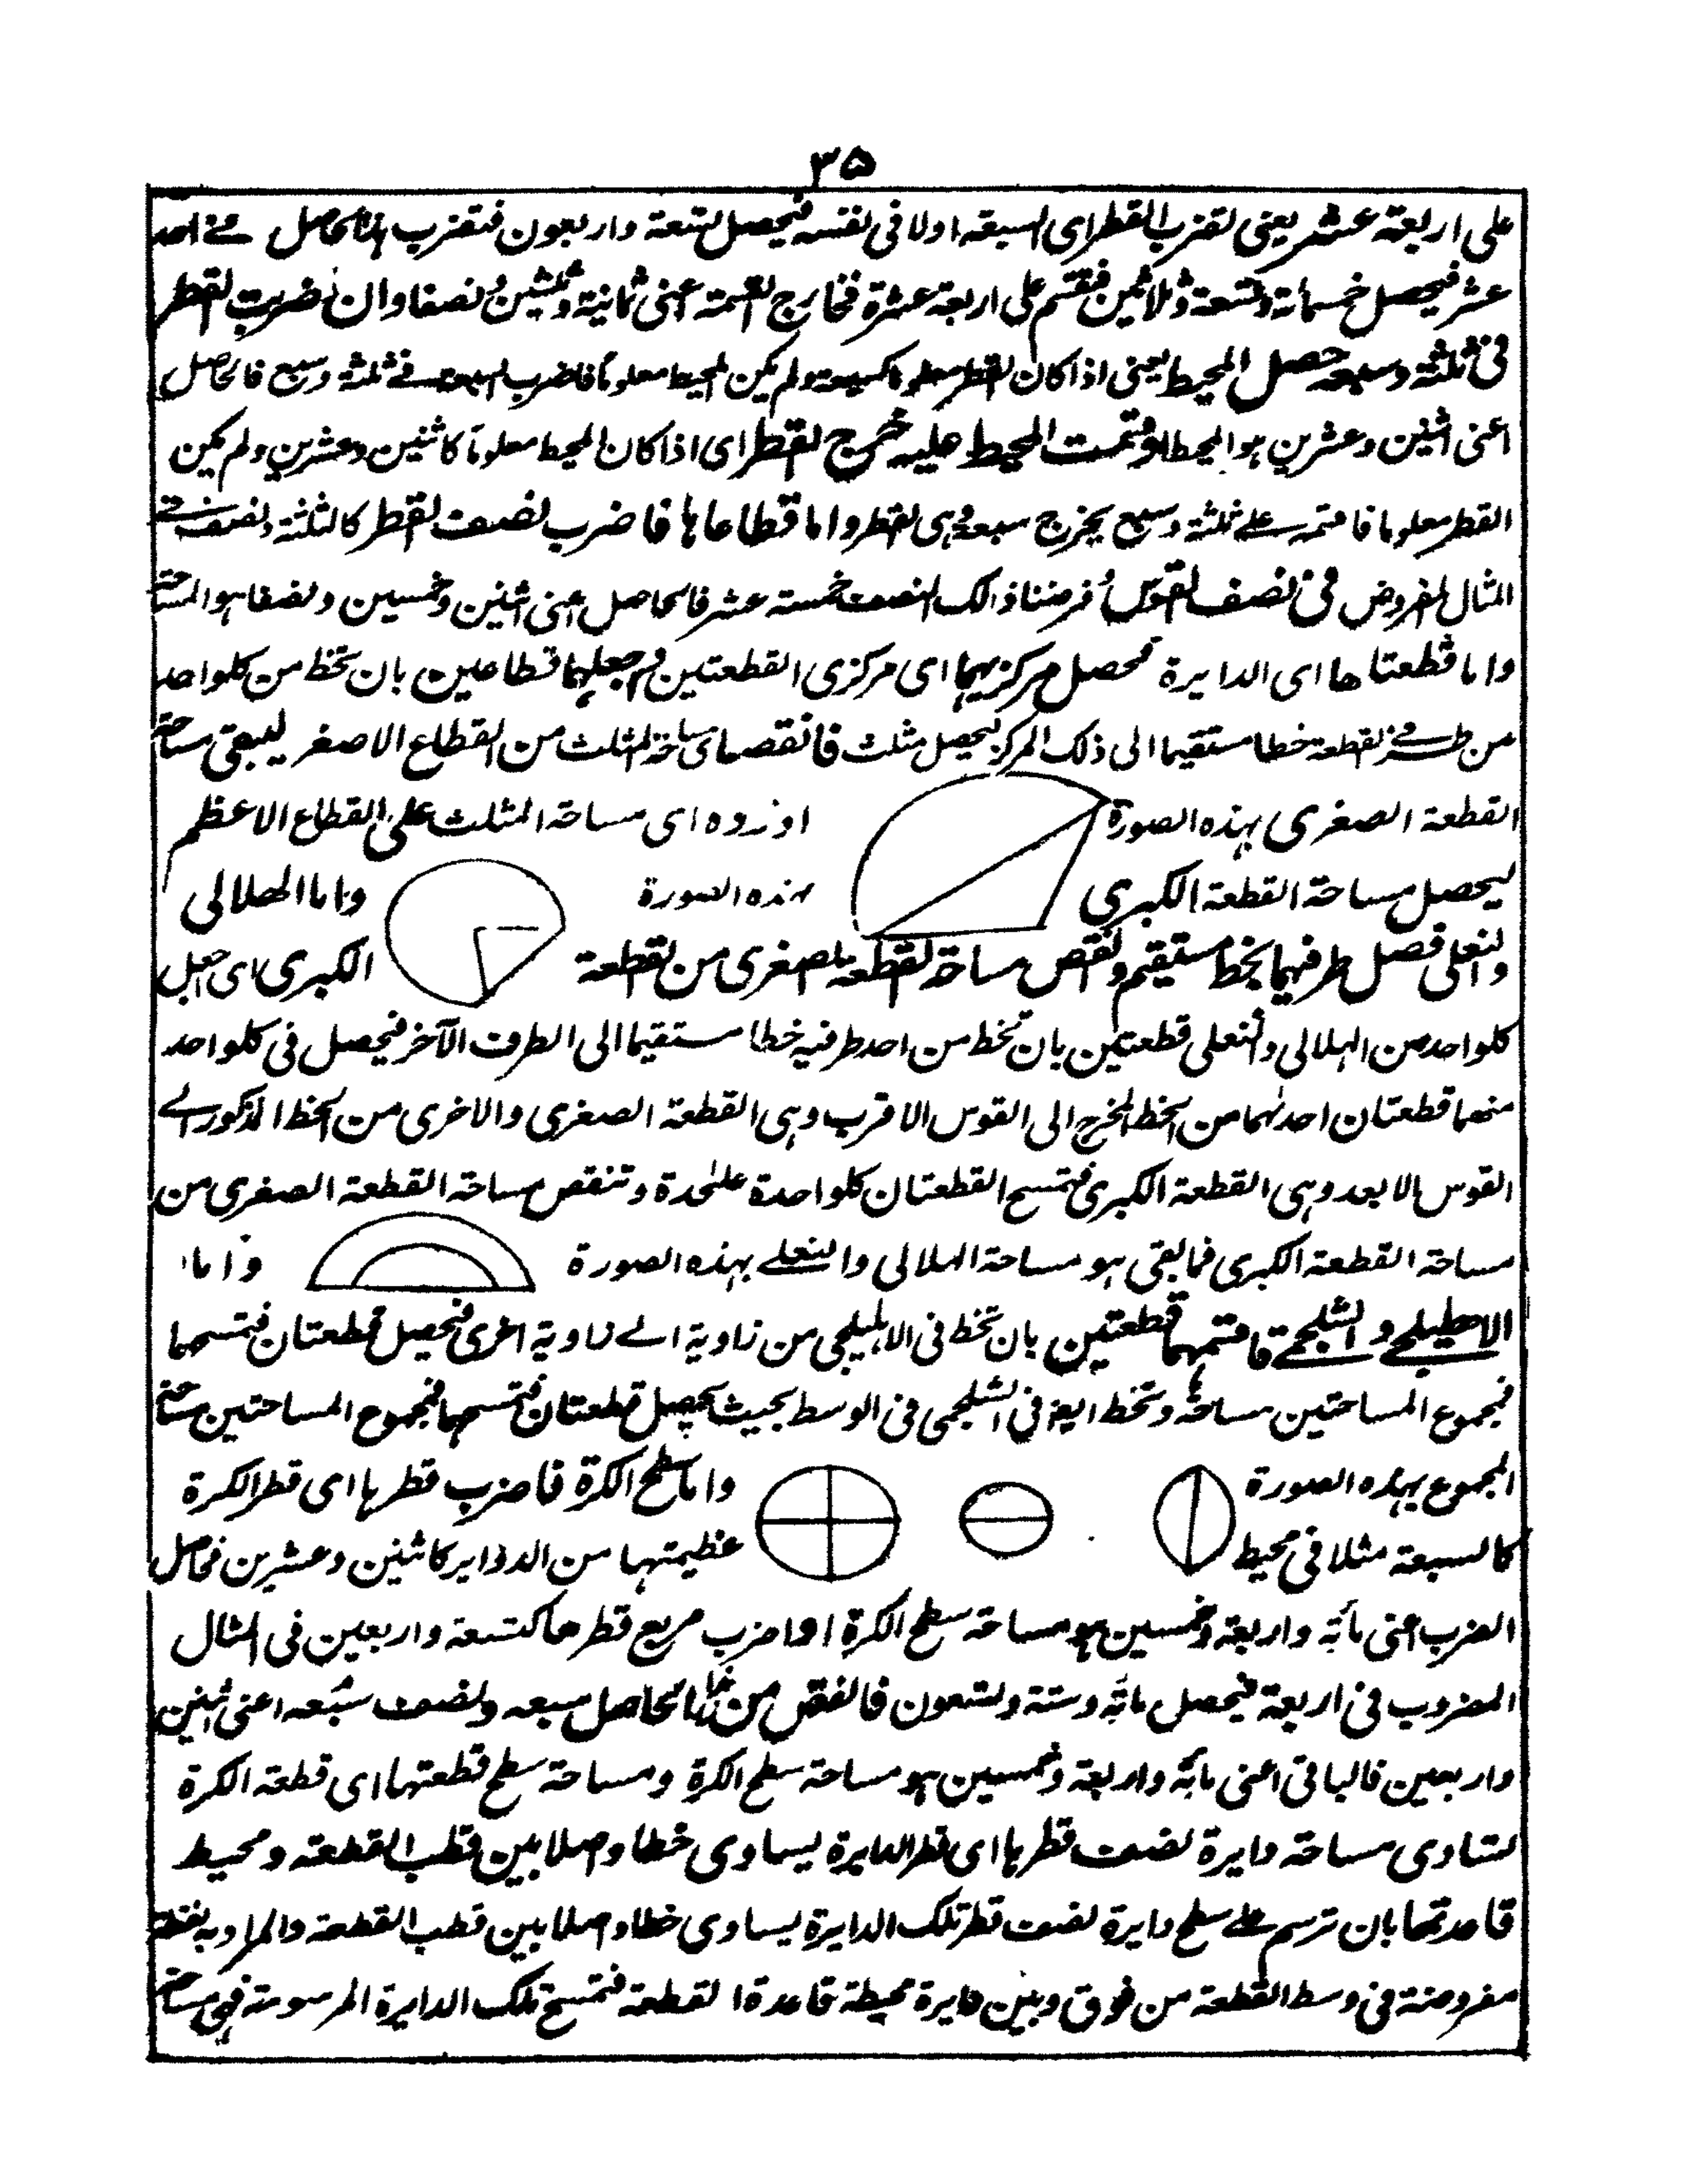 ٣۵
على اربعة عشر يعنى تضرب القطر اى السبعة اولا فى نفسه فيحصل تسعة واربعون فتضرب هذا الحاصل فے احد
عشر فيحصل خمسمأية وتسعة وثلاثين فتقسم على اربعة عشرة فخارج القسمة اعنى ثمانية وثلثين ونصفا وان ضربت القطر
فى ثلثة وسبعه حصل المحيط يعنى اذا كان القطر معلوما كسبعة ولم يكن المحيط معلوما فاضرب السبعة فے ثلثة وسبع فالحاصل
اعنى اثنين وعشرين هو المحيط او قسمت المحيط عليه خرج القطر اى اذا كان المحيط معلوما كاثنين وعشرين ولم يكن
القطر معلوما فاقسمه علے ثلثة وسبع يخرج سبعة وهى القطر واما قطاعاها فاضرب نصف القطر كالثلثة ونصف فے
المثال المفروض فى نصف القوس فرضنا ذالك النصف خمسة عشر فالحاصل اعنى اثنين وخمسين ونصفا هو المساحة
واما قطعتاها اى الدايرة فحصل مركزيهما اى مركزى القطعتين وجعلهما قطاعين بان تخط من كلواحد
من طرفے القطعة خطا مستقيما الى ذلك المركز ليحصل مثلث فانقصها اى مساحة المثلث من القطاع الاصغر ليبقى مساحة
القطعة الصغرى بهذه الصورة او زده اى مساحة المثلث على القطاع الاعظم
ليحصل مساحة القطعة الكبرى بهذه الصورة واما الهلالى
والنعلى فصل طرفيهما بخط مستقيم وانقص مساحة القطعة الصغرى من القطعة الكبرى اى اجعل
كلواحد من الهلالى والنعلى قطعتين بان تخط من احد طرفيه خطا مستقيما الى الطرف الآخر فيحصل فى كلواحد
منهما قطعتان احدٰهما من الخط المخرج الى القوس الاقرب وهى القطعة الصغرى والاخرى من الخط المذكور الے
القوس الابعد وهى القطعة الكبرى فتمسح القطعتان كلواحدة علٰحدة وتنقص مساحة القطعة الصغرى من
مساحة القطعة الكبرى فما بقى هو مساحة الهلالى والنعلے بهذه الصورة واما
الاهليلجے والشلجمے فاقسمهما قطعتين بان تخط فى الاهليلجى من زاوية الے زاوية اخرى فيحصل قطعتان فتمسحهما
فمجموع المساحتين مساحته وتخط ايضا فى الشلجمى فى الوسط بحيث يحصل قطعتان فتمسحهما فمجموع المساحتين مساحة
المجموع بهذه الصورة واما سطح الكرة فاضرب قطرها اى قطر الكرة
كالسبعة مثلا فى محيط عظيمتها من الدواير كاثنين وعشرين فحاصل
الضرب اعنى مأية واربعة وخمسين هو مساحة سطح الكرة او اضرب مربع قطرها كتسعة واربعين فى المثال
المضروب فى اربعة فيحصل مأية وستة وتسعون فانقص من هذا الحاصل سبعه ونصف سبعه اعنى اثنين
واربعين فالباقى اعنى مأية واربعة وخمسين هو مساحة سطح الكرة ومساحة سطح قطعتها اى قطعة الكرة
تساوى مساحة دايرة نصف قطرها اى قطر الدايرة يساوى خطا واصلا بين قطب القطعة ومحيط
قاعدتها بان ترسم علے سطح دايرة نصف قطر تلك الدايرة يساوى خطا واصلا بين قطب القطعة والمراد به نقطة
مفروضة فى وسط القطعة من فوق وبين دايرة محيطة قاعدة القطعة فتمسح تلك الدايرة المرسومة فهى مساحة